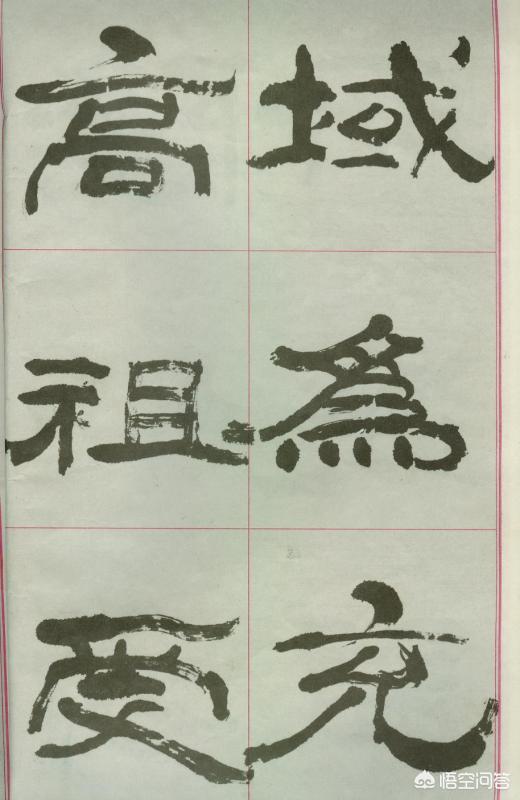 域為充
高祖受
悟空问答